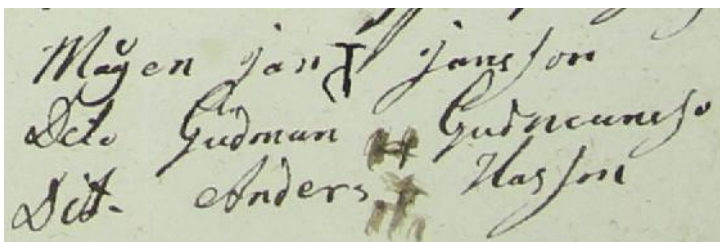 Mågen Jan Jansson
Dito Gudmun Gudmunsso
Dit. Anders Hasson